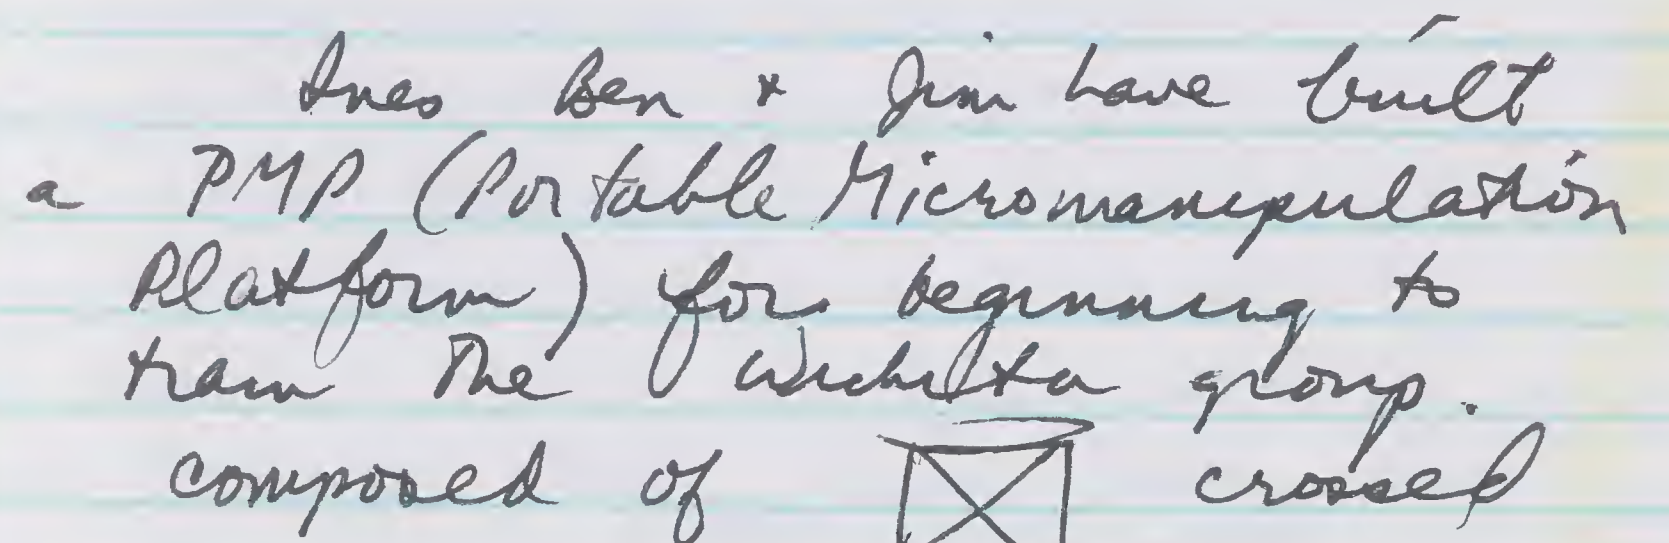 Ines Ben & Jim have built
a PMP (Portable Micromanipulation
Platform) for beginning to
train The Wichita group.
composed of crossed